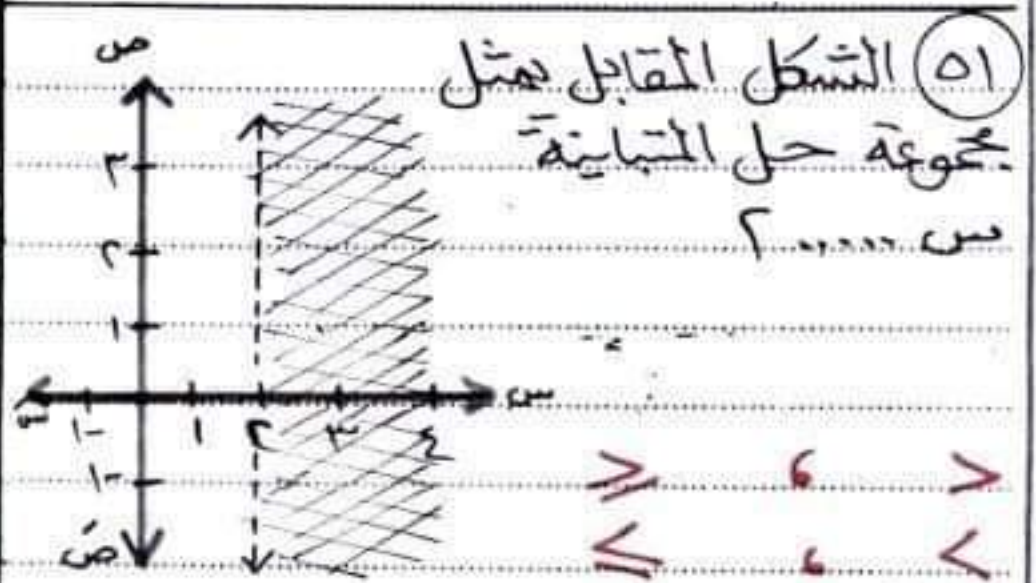 ٥١ الشكل المقابل يمثل
مجموعة حل المتباينة
س ...... ٢
> ، ⩾
< ، ≤
ص
٣
٢
١
س
-١ ١ ٢ ٣ ٤
-١
صَ